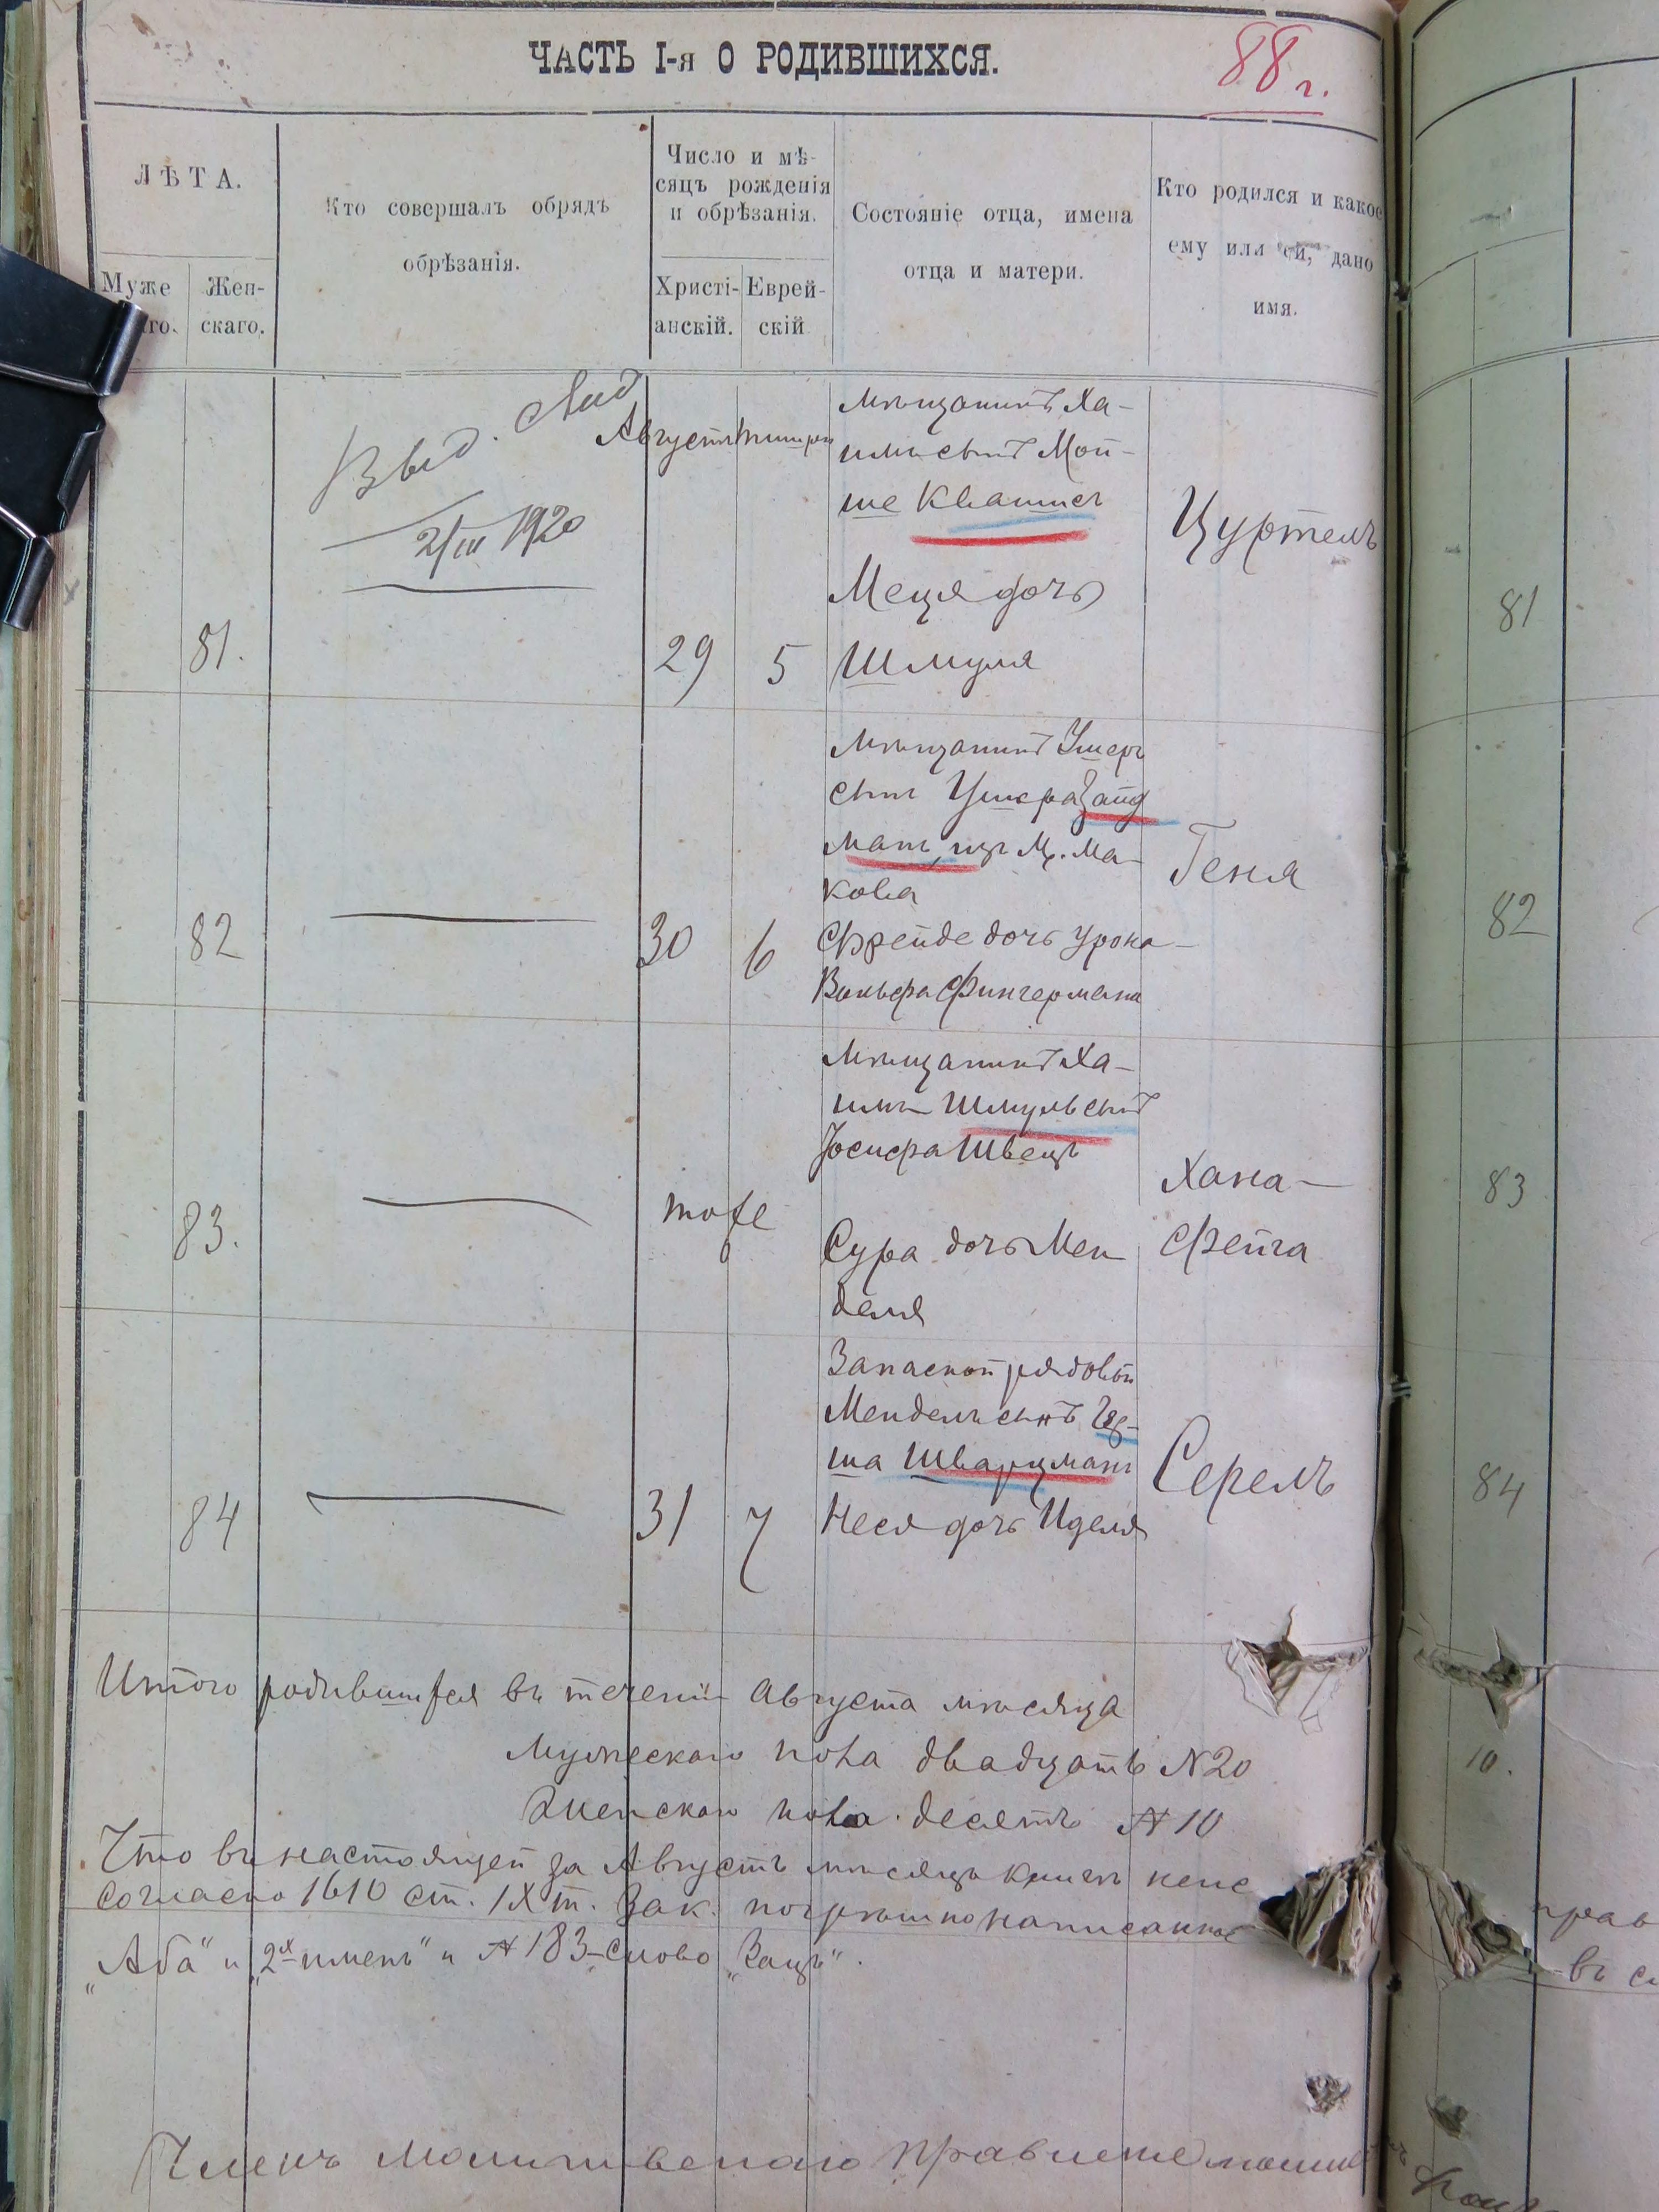 ЧАСТЬ I-я О РОДИВШИХСЯ.
88 г.
ЛѢТА.
Муже
го.
Жен-
скаго.
Кто совершалъ обрядъ
обрѣзанія.
Число и мѣ-
сяцъ рожденія
и обрѣзанія.
Христі-
анскій.
Еврей-
скій
Состояніе отца, имена
отца и матери.
Кто родился и какое
ему или ей, дано
имя.
Выд.
2/III 1920
Августъ
тишри
81.
29
5
мѣщанинъ Ха-
имъ сынъ Мой-
ше Квашисъ
Меця дочь
Шмуля
Цуртель
81
82
30
6
мѣщанинъ Ушеръ
сынъ Ушера Зайд
манъ, изъ М. Ма-
кова
Фрейде дочь Урона
Вольфа Фингермана
Геня
82
83.
тоже
мѣщанинъ Ха-
имъ Шмуль сынъ
Іосифа Швецъ
Сура дочь Мен
деля
Хана-
Фейга
83
84
31
7
Запасной рядовой
Мендель сынъ Гер-
ша Шварцманъ
Неся дочь Иделя
Серель
84
Итого родившихся въ теченіи августа мѣсяца
Мужескаго пола двадцать N 20
Женскаго пола десять N 10
10.
Что въ настоящей за Августъ мѣсяцъ книгѣ
согласно 1610 ст. IX т. Зак. погрѣшно написанное
прав
„Аба“ и „2х именъ“ и N 183 слово „Зацъ“.
въ с
Членъ молитвеннаго правленія